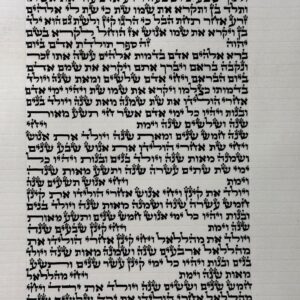 ותלד בן ותקרא את שמו שת כי שת לי אלהים
זרע אחר תחת הבל כי הרגו קין ולשת גם הוא ילד
בן ויקרא את שמו אנוש אז הוחל לקרא בשם
יהוה זה ספר תולדת אדם ביום
ברא אלהים אדם בדמות אלהים עשה אתו זכר
ונקבה בראם ויברך אתם ויקרא את שמם אדם ביום
הבראם ויחי אדם שלשים ומאת שנה ויולד
בדמותו כצלמו ויקרא את שמו שת ויהיו ימי אדם
אחרי הולידו את שת שמנה מאת שנה ויולד בנים
ובנות ויהיו כל ימי אדם אשר חי תשע מאות
שנה ושלשים שנה וימת ויחי שת
חמש שנים ומאת שנה ויולד את אנוש
ויחי שת אחרי הולידו את אנוש שבע שנים
ושמנה מאות שנה ויולד בנים ובנות ויהיו כל
ימי שת שתים עשרה שנה ותשע מאות שנה
וימת ויחי אנוש תשעים שנה
ויולד את קינן ויחי אנוש אחרי הולידו את
קינן חמש עשרה שנה ושמנה מאות שנה ויולד בנים
ובנות ויהיו כל ימי אנוש חמש שנים ותשע מאות
שנה וימת ויחי קינן שבעים שנה
ויולד את מהללאל ויחי קינן אחרי הולידו את
מהללאל ארבעים שנה ושמנה מאות שנה ויולד
בנים ובנות ויהיו כל ימי קינן עשר שנים ותשע
מאות שנה וימת ויחי מהללאל
חמש שנים וששים שנה ויולד את ירד ויחי
מהללאל אחרי הולידו את ירד שלשים שנה